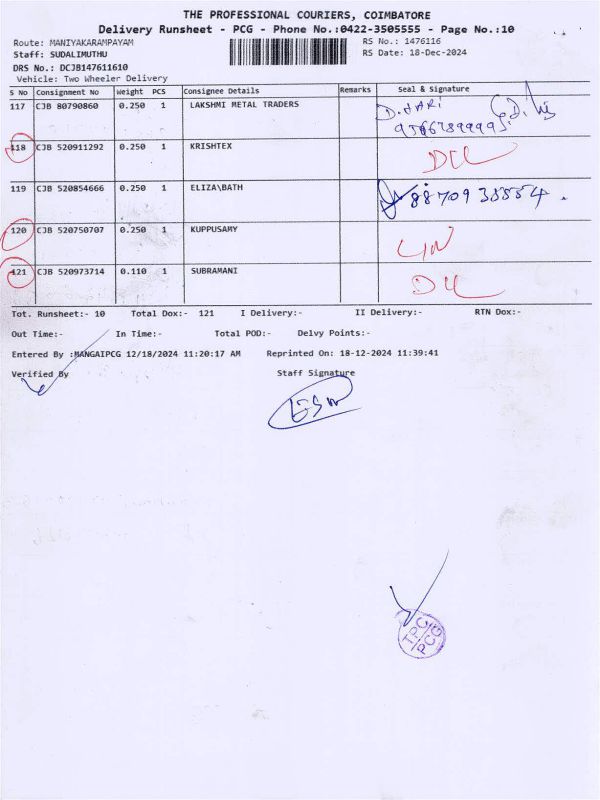 THE PROFESSIONAL COURIERS, COIMBATORE
Delivery Runsheet - PCG - Phone No.:0422-3505555 - Page No.:10
Route: MANIYAKARAMPAYAM
RS No.: 1476116
Staff: SUDALIMUTHU
RS Date: 18-Dec-2024
DRS No.: DCJB147611610
Vehicle: Two Wheeler Delivery
S No Consignment No Weight PCS Consignee Details Remarks Seal & Signature
117 CJB 80790860 0.250 1 LAKSHMI METAL TRADERS D. HARI
118 CJB 520911292 0.250 1 KRISHTEX DLL
119 CJB 520854666 0.250 1 ELIZA\BATH
120 CJB 520750707 0.250 1 KUPPUSAMY
121 CJB 520973714 0.110 1 SUBRAMANI DLL
Tot. Runsheet:- 10 Total Dox:- 121 I Delivery:- II Delivery:- RTN Dox:-
Out Time:- In Time:- Total POD:- Delvy Points:-
Entered By :MANGAIPCG 12/18/2024 11:20:17 AM Reprinted On: 18-12-2024 11:39:41
Verified By Staff Signature
TPC
PCG